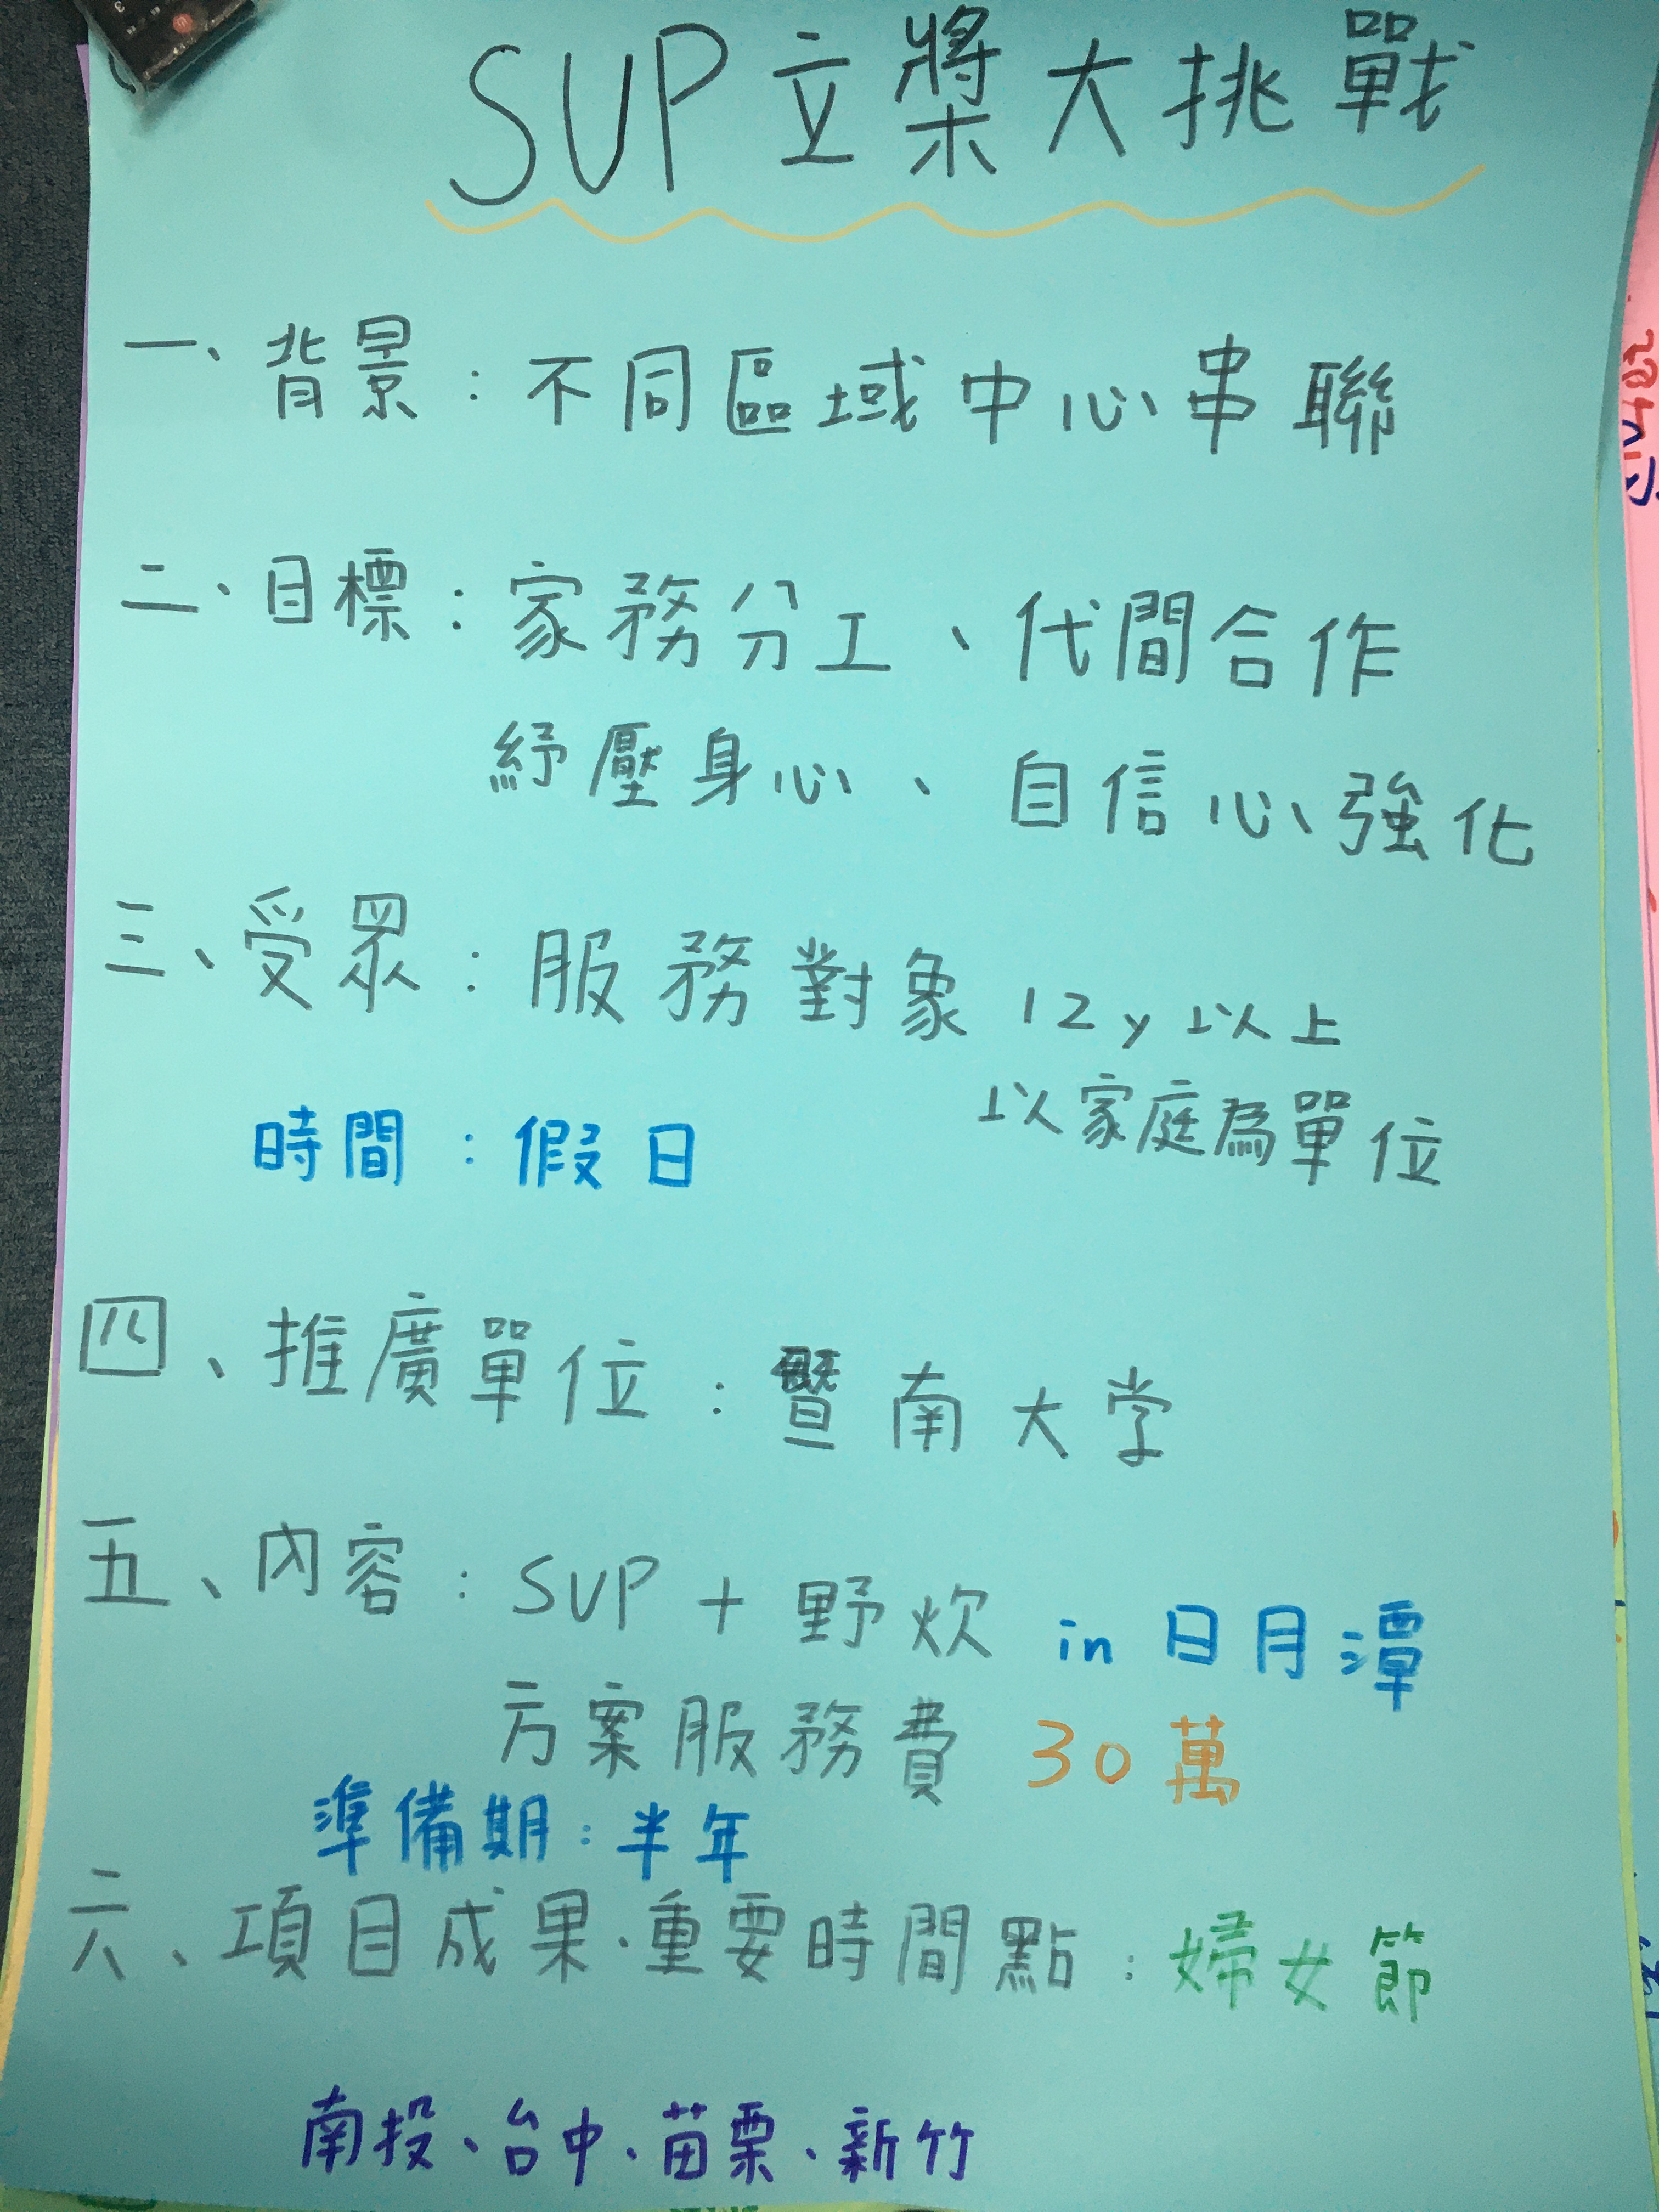 SUP立槳大挑戰
一、背景：不同區域中心串聯
二、目標：家務分工、代間合作
紓壓身心、自信心強化
三、受眾：服務對象 12y以上
以家庭為單位
時間：假日
四、推廣單位：暨南大学
五、內容：SUP + 野炊 in 日月潭
方案服務費 30萬
準備期：半年
六、項目成果、重要時間點：婦女節
南投、台中、苗栗、新竹